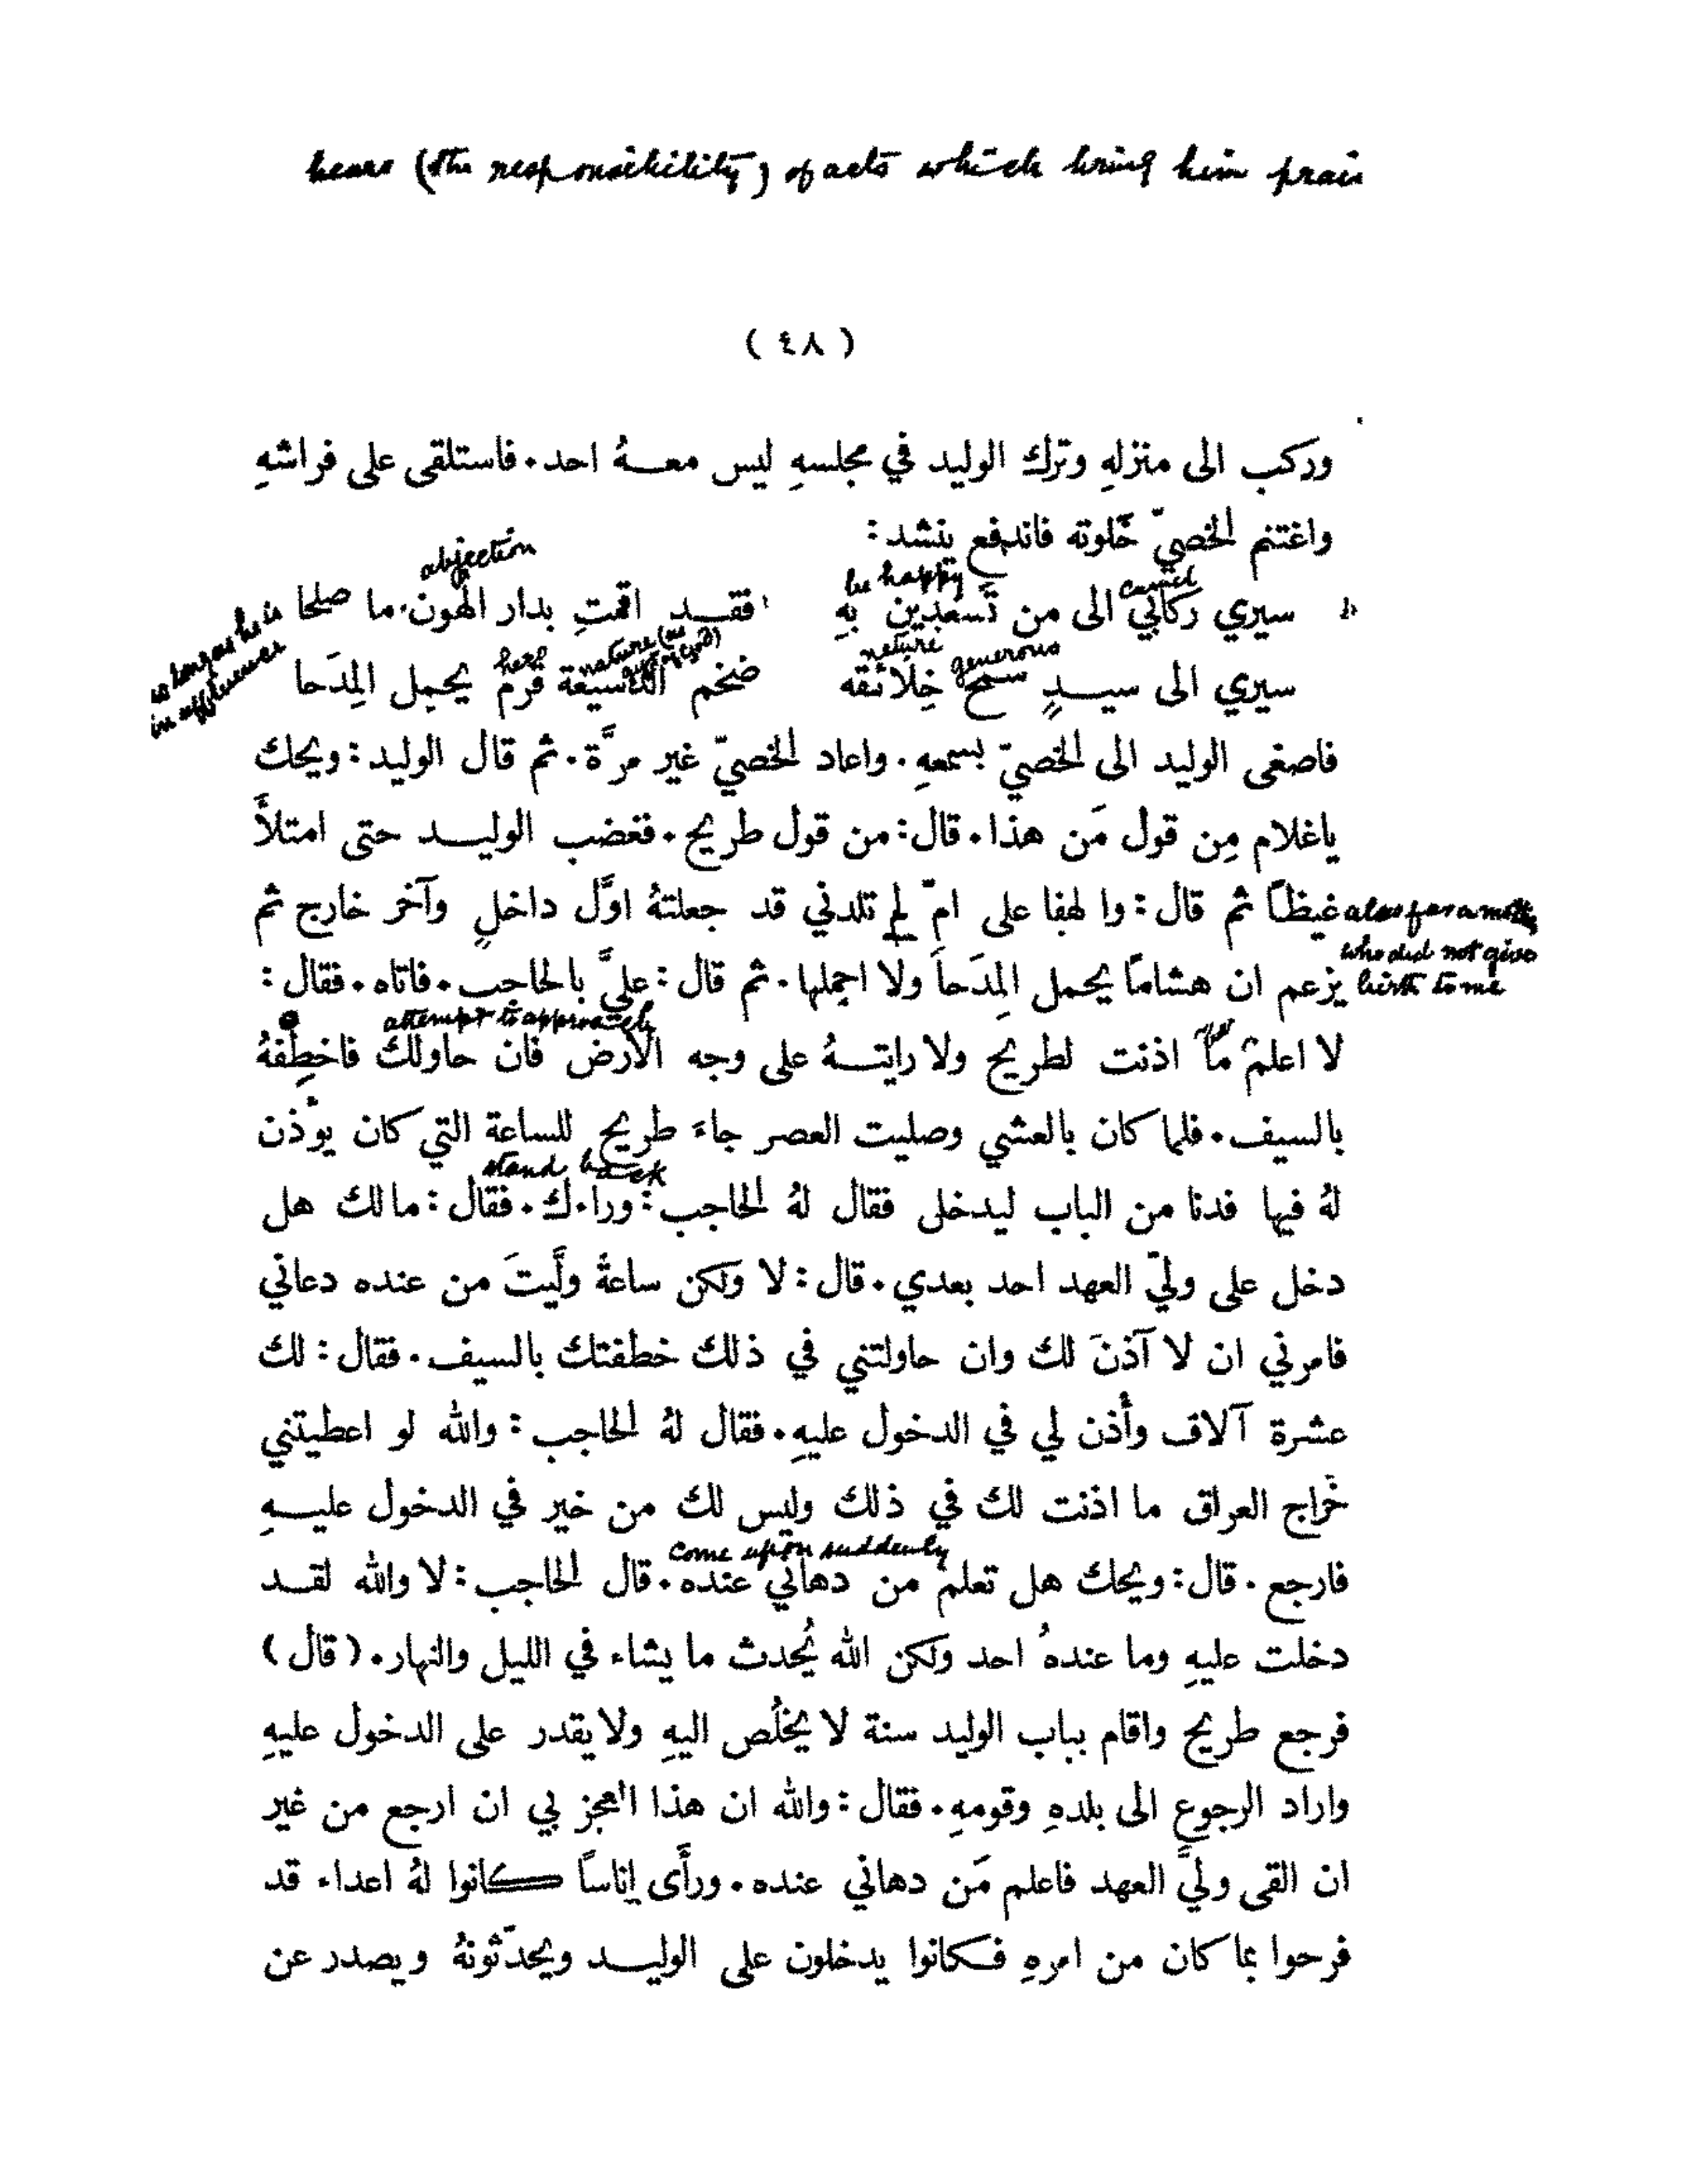 bears (the responsibility) of acts which bring him prais
( ٤٨ )
وركب الى منزلهِ وترك الوليد في مجلسهِ ليس معهُ احد. فاستلقى على فراشهِ
واغتنم الخصيّ خَلوته فاندفع ينشد:
abjection
be happy
camel
سيري ركابي الى من تَسعَدين بهِ فقد اقمتِ بدار الهون ما صلحا
as long as he is
in affluence
nature
generous
nature (as
gift of God)
hero
سيري الى سيدٍ سمحٍ خِلائقه ضخم الدسيعة قرم يحمل المِدَحا
فاصغى الوليد الى الخصيّ بسمعهِ. واعاد الخصيّ غير مرَّة. ثم قال الوليد: ويحك
ياغلام مِن قول مَن هذا. قال: من قول طريح. فغضب الوليد حتى امتلأَ
غيظًا ثم قال: وا لهفا على امّ لم تلدني قد جعلتهُ اوَّل داخلٍ وآخر خارج ثم
alas for a mother
who did not give
birth to me
يزعم ان هشامًا يحمل المِدَحا ولا احملها. ثم قال: عليَّ بالحاجب. فاتاه. فقال:
attempt to approach
لا اعلم ما اذنت لطريح ولا رايتهُ على وجه الارض فان حاولك فاخطِفهُ
بالسيف. فلما كان بالعشي وصليت العصر جاءَ طريح للساعة التي كان يوذن
stand back
لهُ فيها فدنا من الباب ليدخل فقال لهُ الحاجب: وراءك. فقال: مالك هل
دخل على وليّ العهد احد بعدي. قال: لا ولكن ساعةً ولَّيتَ من عنده دعاني
فامرني ان لا آذنَ لك وان حاولتني في ذلك خطفتك بالسيف. فقال: لك
عشرة آلاف وأذن لي في الدخول عليهِ. فقال لهُ الحاجب: والله لو اعطيتني
خَراج العراق ما اذنت لك في ذلك وليس لك من خير في الدخول عليهِ
come upon suddenly
فارجع. قال: ويحك هل تعلم من دهاني عنده. قال الحاجب: لا والله لقد
دخلت عليهِ وما عندهُ احد ولكن الله يُحدث ما يشاء في الليل والنهار. (قال)
فرجع طريح واقام بباب الوليد سنة لا يخلُص اليهِ ولا يقدر على الدخول عليهِ
واراد الرجوع الى بلدهِ وقومهِ. فقال: والله ان هذا العجز بي ان ارجع من غير
ان القى وليَّ العهد فاعلم مَن دهاني عنده. ورأَى اناسًا كانوا لهُ اعداء قد
فرحوا بما كان من امرهِ فكانوا يدخلون على الوليد ويحدّثونهُ ويصدر عن